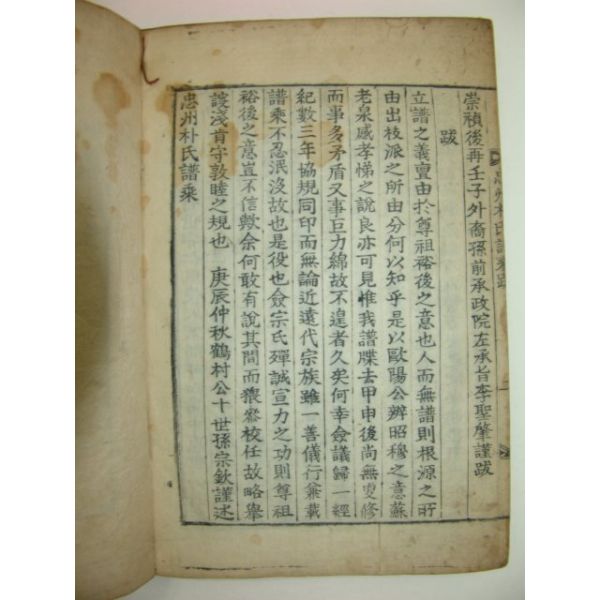 崇禎後再壬子外裔孫前承政院左承旨李聖肇謹跋
跋
立譜之義亶由於尊祖裕後之意也人而無譜則根源之所
由出枝派之所由分何以知乎是以歐陽公辨昭穆之意蘇
老泉感孝悌之說良亦可見惟我譜牒去甲申後尚無更修
而事多矛盾又事巨力綿故不遑者久矣何幸僉議歸一經
紀數三年協規同印而無論近遠代宗族雖一善儀行兼載
譜乘不忍泯沒故也是役也僉宗氏殫誠宣力之功則尊祖
裕後之意豈不信歟余何敢有說其間而猥忝校任故略舉
諓淺肯守敦睦之規也 庚辰仲秋鶴村公十世孫宗欽謹述
忠州朴氏譜乘
忠州朴氏譜乘跋